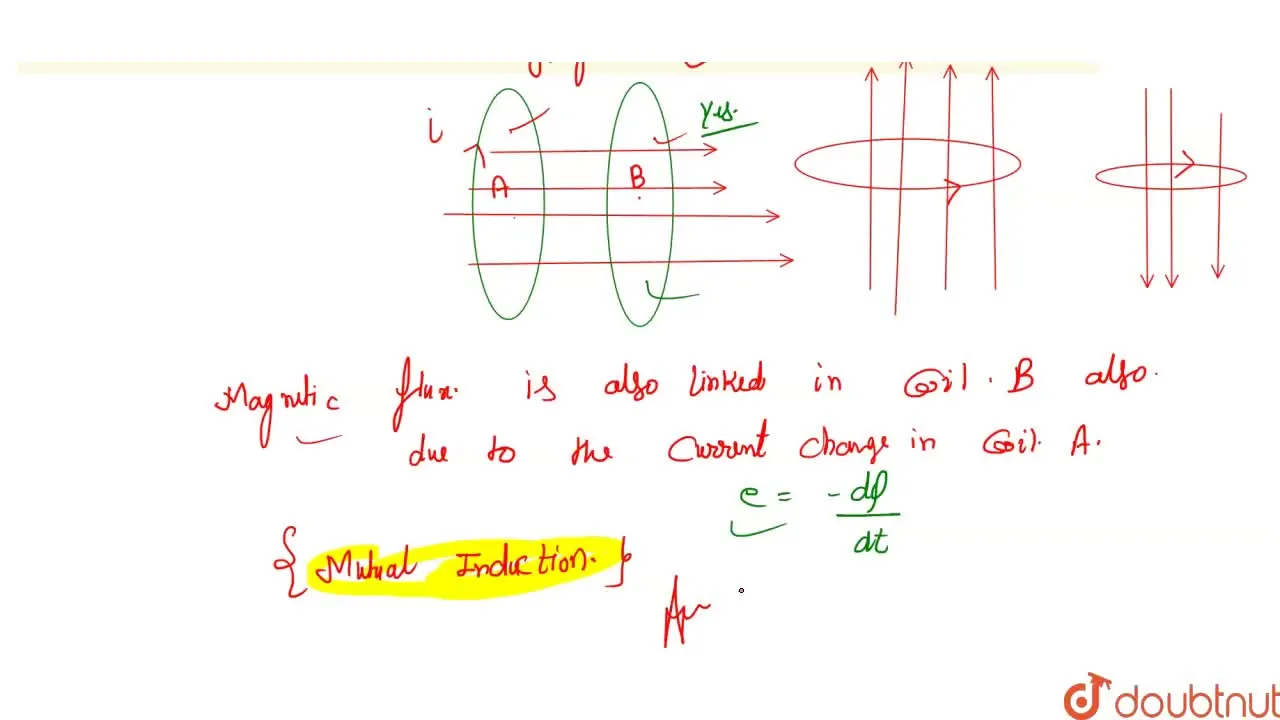 i
Yes.
A
B
Magnetic flux. is also linked in Coil. B also.
due to the Current Change in Coil. A.
e = -dφ/dt
{ Mutual Induction. }
doubtnut